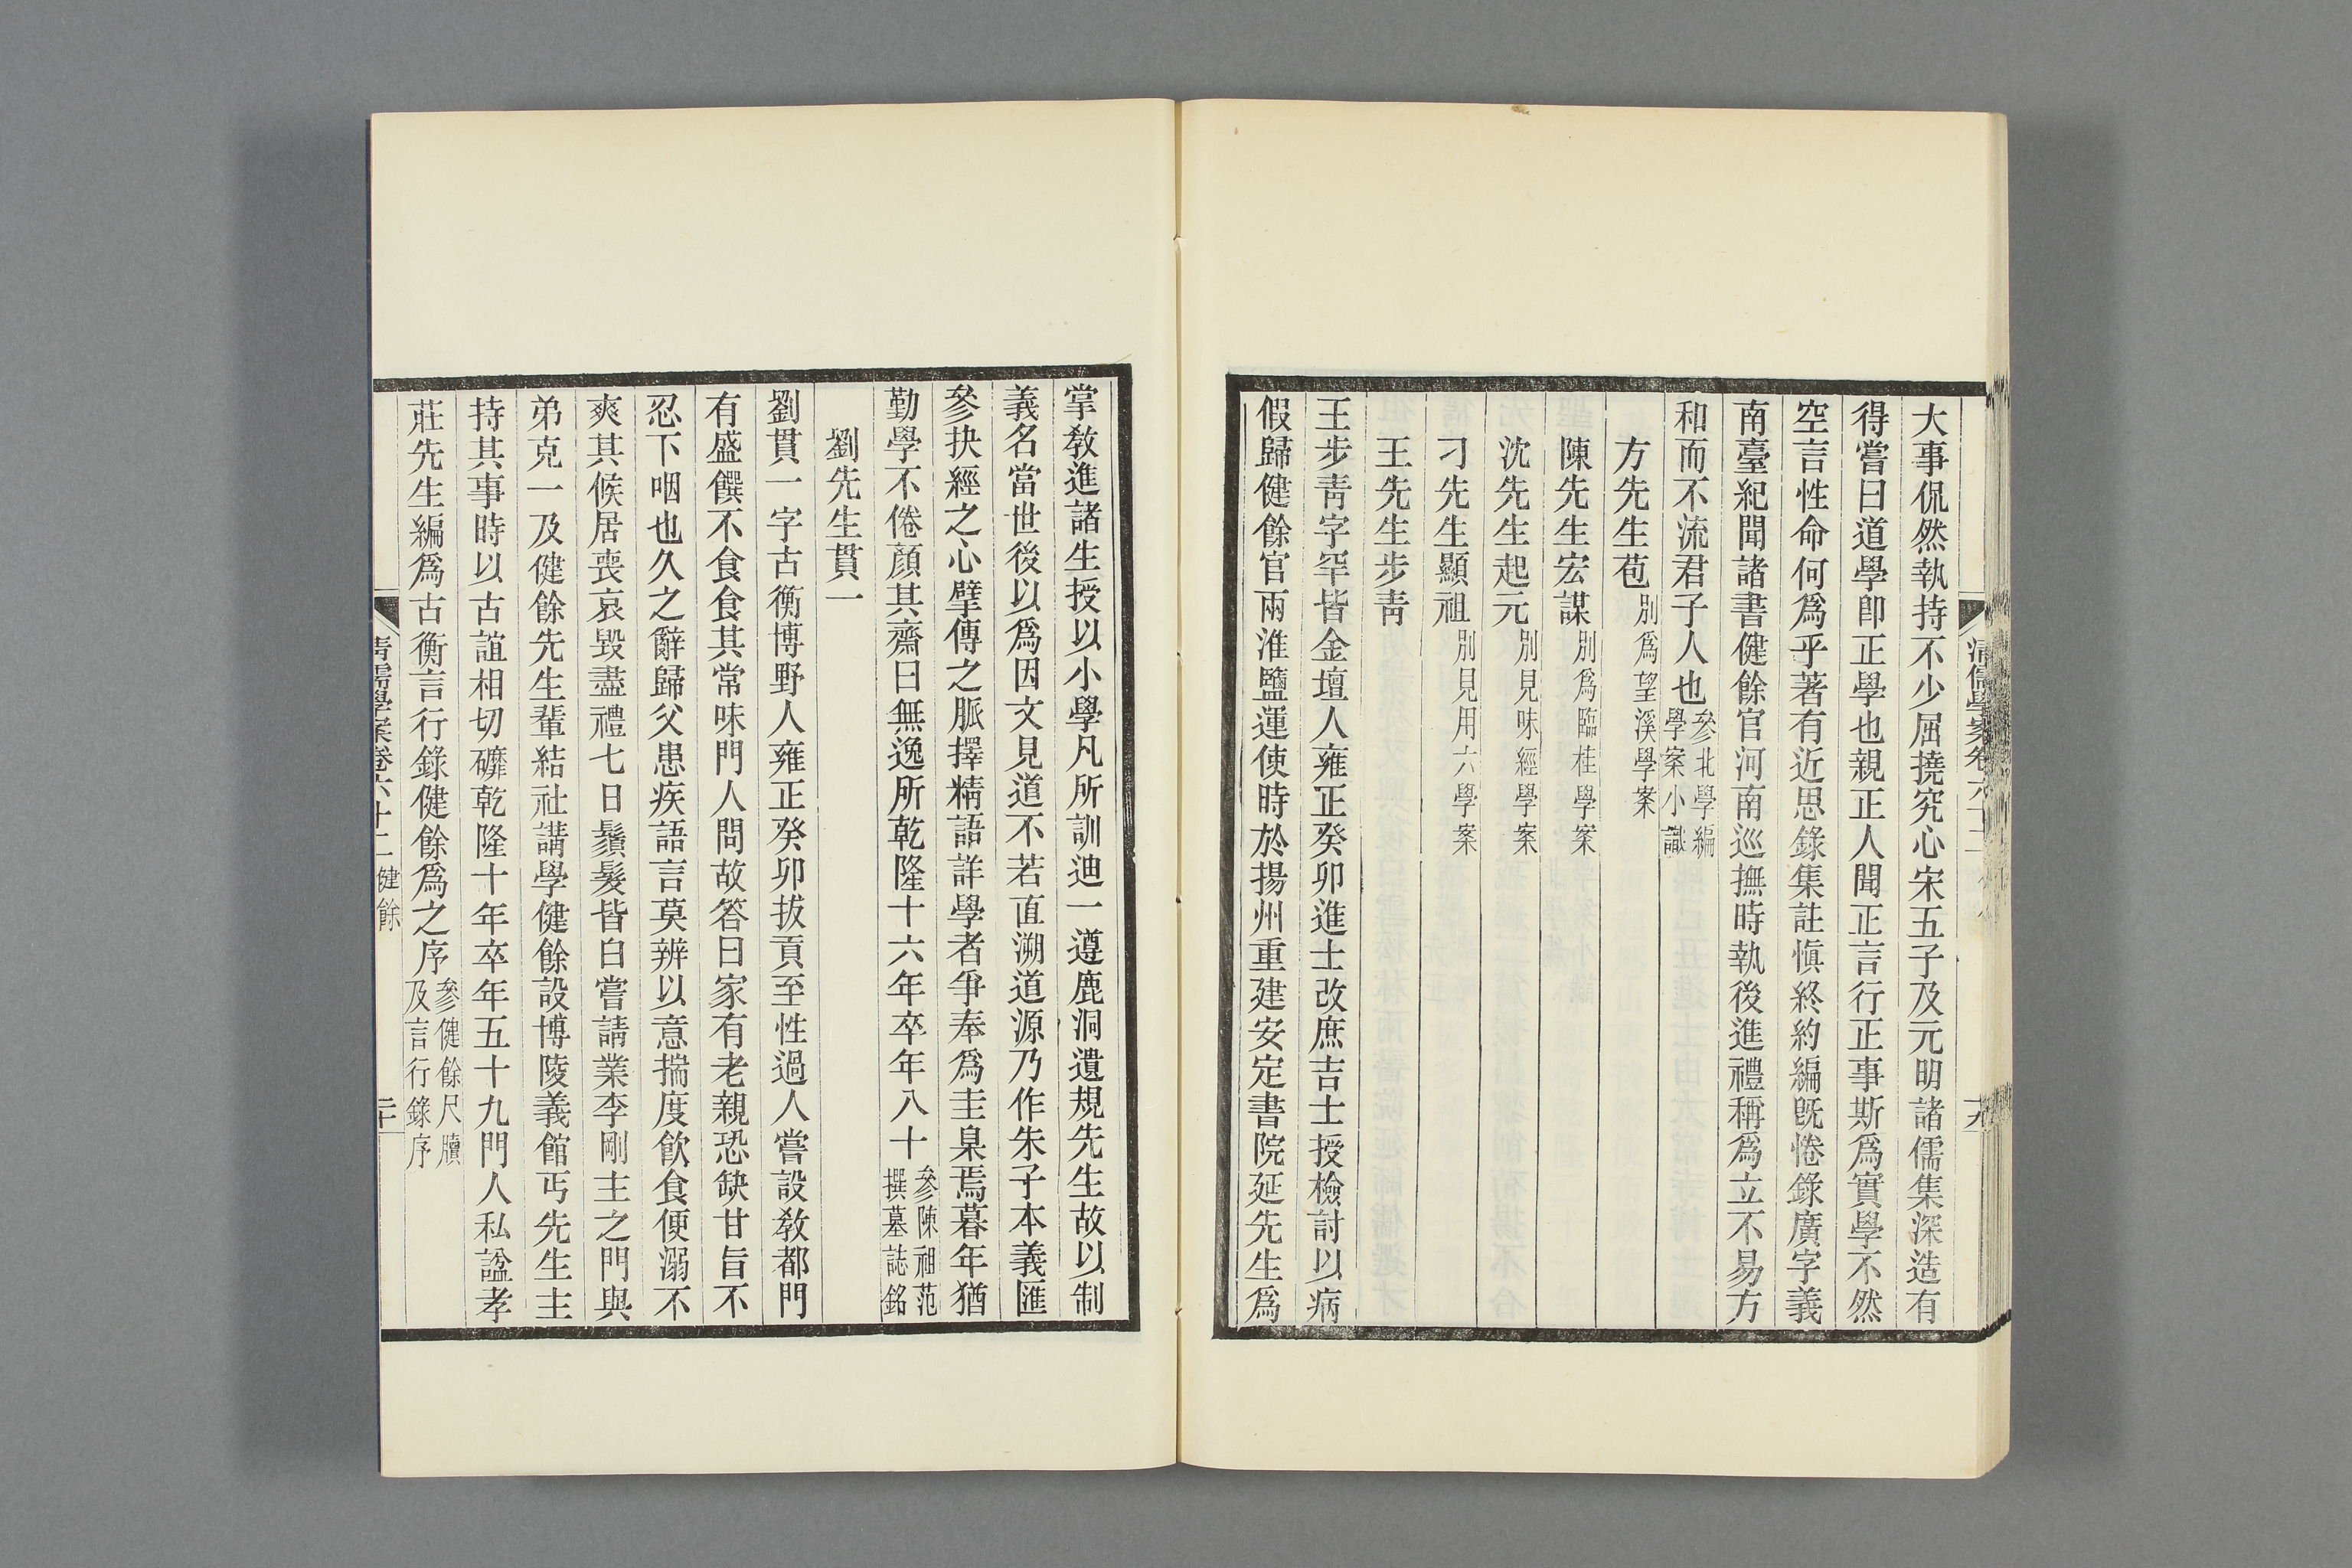 大事侃然執持不少屈撓究心宋五子及元明諸儒集深造有
得嘗曰道學卽正學也親正人聞正言行正事斯爲實學不然
空言性命何爲乎著有近思錄集註愼終約編旣惓錄廣字義
南臺紀聞諸書健餘官河南巡撫時執後進禮稱爲立不易方
和而不流君子人也參北學編學案小識
方先生苞別爲望溪學案
陳先生宏謀別爲臨桂學案
沈先生起元別見味經學案
刁先生顯祖別見用六學案
王先生步靑
王步靑字罕皆金壇人雍正癸卯進士改庶吉士授檢討以病
假歸健餘官兩淮鹽運使時於揚州重建安定書院延先生爲
掌敎進諸生授以小學凡所訓迪一遵鹿洞遺規先生故以制
義名當世後以爲因文見道不若直溯道源乃作朱子本義匯
參抉經之心擘傳之脈擇精語詳學者爭奉爲圭臬焉暮年猶
勤學不倦顏其齋曰無逸所乾隆十六年卒年八十參陳祖范撰墓誌銘
劉先生貫一
劉貫一字古衡博野人雍正癸卯拔貢至性過人嘗設敎都門
有盛饌不食食其常味門人問故答曰家有老親恐缺甘旨不
忍下咽也久之辭歸父患疾語言莫辨以意揣度飮食便溺不
爽其候居喪哀毀盡禮七日鬚髮皆白嘗請業李剛主之門與
弟克一及健餘先生輩結社講學健餘設博陵義館丐先生主
持其事時以古誼相切礳乾隆十年卒年五十九門人私諡孝
莊先生編爲古衡言行錄健餘爲之序參健餘尺牘及言行錄序
淸儒學案卷六十二 健餘
二十